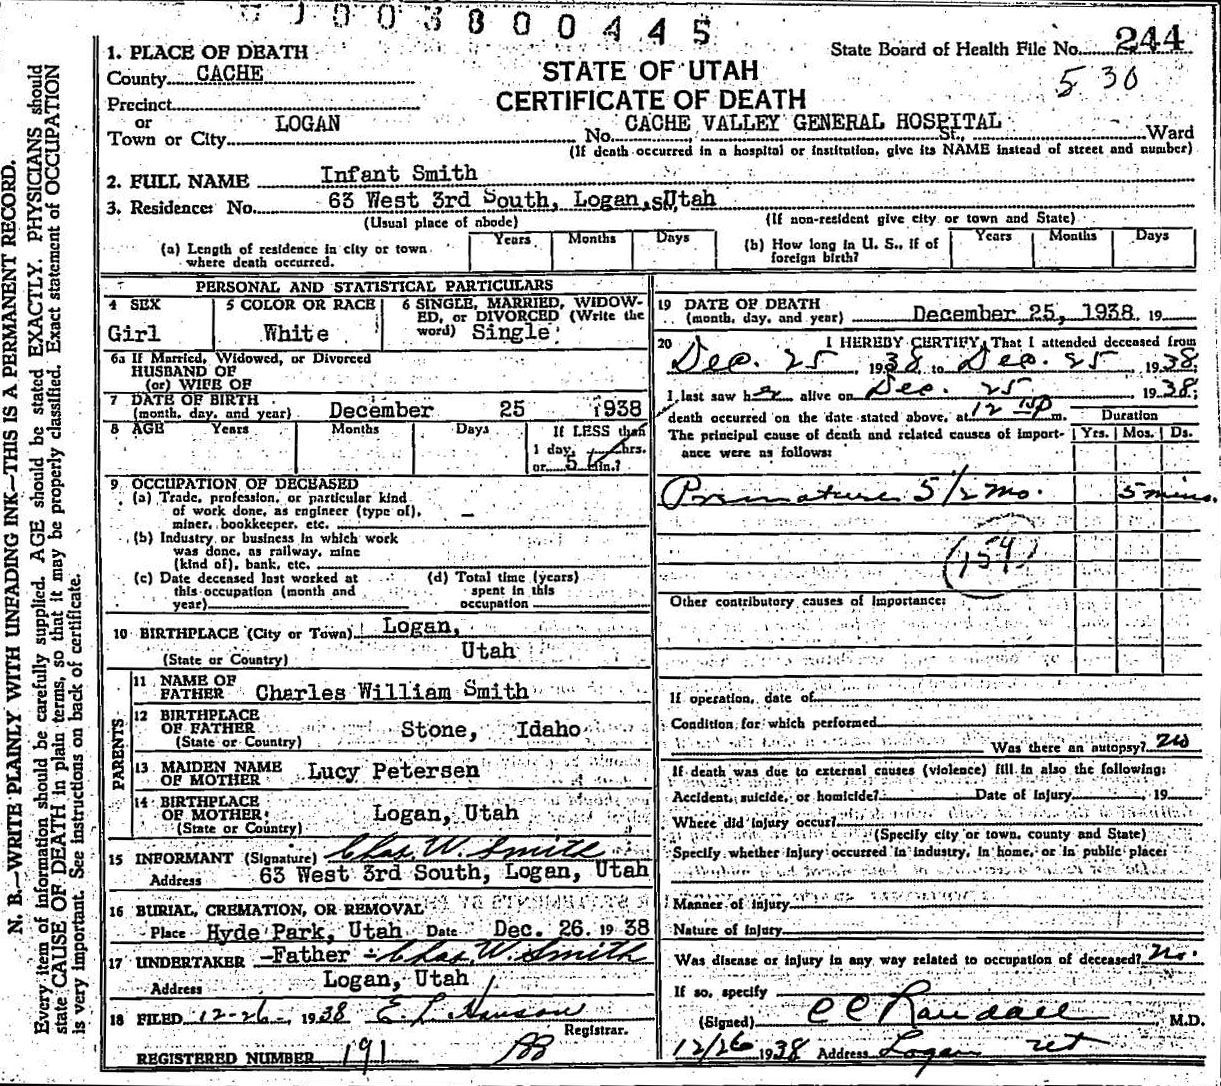 0 0 3 8 0 0 4 4 5
State Board of Health File No. 244
5 30
1. PLACE OF DEATH
County CACHE
STATE OF UTAH
CERTIFICATE OF DEATH
Precinct
or
Town or City LOGAN No. CACHE VALLEY GENERAL HOSPITAL St., Ward
(If death occurred in a hospital or institution, give its NAME instead of street and number)
2. FULL NAME Infant Smith
3. Residence: No. 63 West 3rd South, Logan, St, Utah
(Usual place of abode) (If non-resident give city or town and State)
(a) Length of residence in city or town where death occurred. Years Months Days
(b) How long in U. S., if of foreign birth? Years Months Days
PERSONAL AND STATISTICAL PARTICULARS
4 SEX
Girl
5 COLOR OR RACE
White
6 SINGLE, MARRIED, WIDOW-
ED, or DIVORCED (Write the
word) Single
6a If Married, Widowed, or Divorced
HUSBAND OF
(or) WIFE OF
7 DATE OF BIRTH
(month, day, and year) December 25 1938
8 AGE Years Months Days If LESS than
1 day, hrs.
or 5 Min.?
9 OCCUPATION OF DECEASED
(a) Trade, profession, or particular kind
of work done, as engineer (type of), –
miner, bookkeeper, etc.
(b) Industry or business in which work
was done, as railway, mine
(kind of), bank, etc.
(c) Date deceased last worked at
this occupation (month and
year)
(d) Total time (years)
spent in this
occupation
10 BIRTHPLACE (City or Town) Logan,
(State or Country) Utah
PARENTS
11 NAME OF
FATHER Charles William Smith
12 BIRTHPLACE
OF FATHER Stone, Idaho
(State or Country)
13 MAIDEN NAME
OF MOTHER Lucy Petersen
14 BIRTHPLACE
OF MOTHER: Logan, Utah
(State or Country)
15 INFORMANT (Signature) Chas. W. Smith
Address 63 West 3rd South, Logan, Utah
16 BURIAL, CREMATION, OR REMOVAL
Place Hyde Park, Utah Date Dec. 26. 19 38
17 UNDERTAKER -Father - Chas. W. Smith
Address Logan, Utah
18 FILED 12-26, 1938 E. L. Hanson
Registrar.
REGISTERED NUMBER 191
19 DATE OF DEATH
(month, day, and year) December 25, 1938. 19
20 I HEREBY CERTIFY, That I attended deceased from
Dec. 25, 1938, to Dec. 25, 1938;
I last saw her alive on Dec. 25, 1938;
death occurred on the date stated above, at 12 10P m.
The principal cause of death and related causes of import-
ance were as follows:
Duration
Yrs. Mos. Ds.
Premature 5 1/2 mo. 5 mins.
159
Other contributory causes of importance:
If operation, date of
Condition for which performed
Was there an autopsy? no
If death was due to external causes (violence) fill in also the following:
Accident, suicide, or homicide? Date of injury , 19
Where did injury occur?
(Specify city or town, county and State)
Specify whether injury occurred in industry, in home, or in public place:
Manner of injury
Nature of injury
Was disease or injury in any way related to occupation of deceased? No.
If so, specify
(Signed) C C Randall M.D.
12/26 1938 Address Logan Ut
N. B.—WRITE PLAINLY WITH UNFADING INK—THIS IS A PERMANENT RECORD.
Every item of information should be carefully supplied. AGE should be stated EXACTLY. PHYSICIANS should
state CAUSE OF DEATH in plain terms, so that it may be properly classified. Exact statement of OCCUPATION
is very important. See instructions on back of certificate.